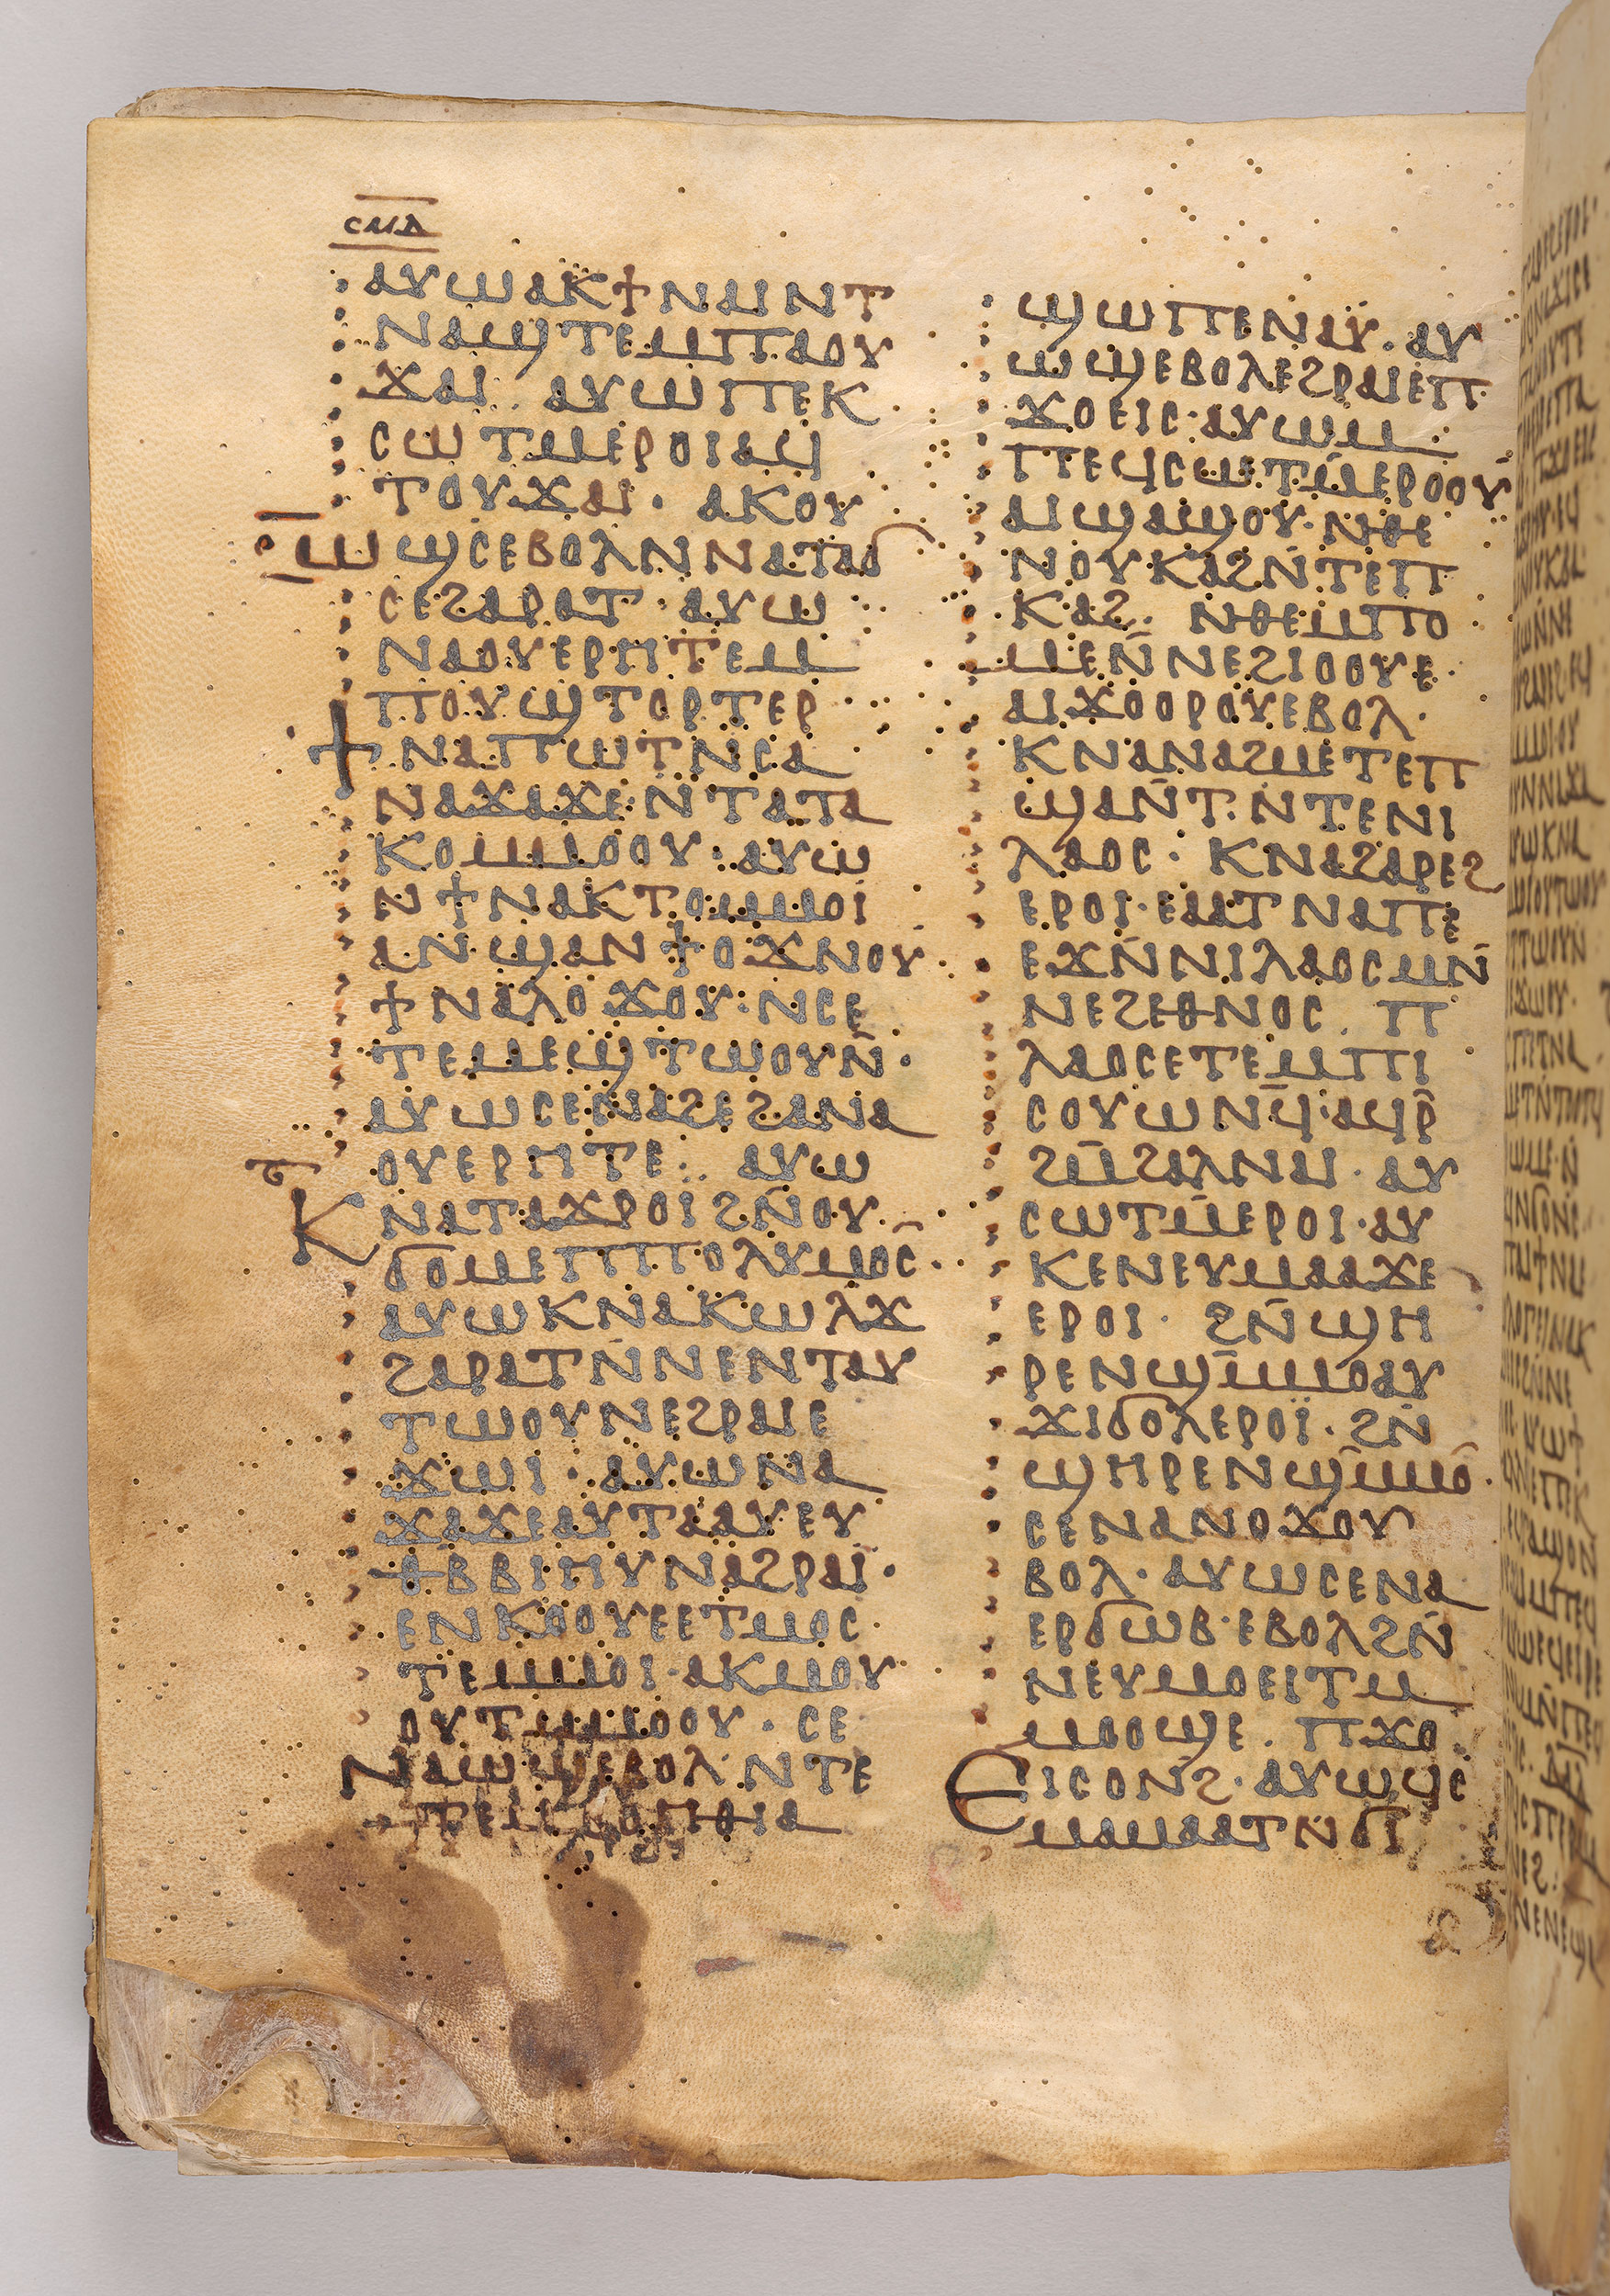 ⲥⲙⲇ
ⲁⲩⲱⲁⲕϯⲛⲁⲓⲛⲧ
ⲛⲁϣⲧⲉⲙⲡⲁⲟⲩ
ϫⲁⲓ· ⲁⲩⲱⲡⲉⲕ
ⲥⲱⲧⲙⲉⲣⲟⲓⲁϥ
ⲧⲟⲩϫⲁⲓ· ⲁⲕⲟⲩ
ⲱϣⲥⲉⲃⲟⲗⲛⲛⲁⲧⲁϭ
ⲥⲉϩⲁⲣⲁⲧ· ⲁⲩⲱ
ⲛⲁⲟⲩⲉⲣⲏⲧⲉⲙ
ⲡⲟⲩϣⲧⲟⲣⲧⲉⲣ
ϯⲛⲁⲡⲱⲧⲛⲥⲁ
ⲛⲁϫⲁϫⲉ·ⲛ̄ⲧⲁⲧⲁ
ⲕⲟⲙⲙⲟⲟⲩ· ⲁⲩⲱ
ⲛϯⲛⲁⲕⲧⲟⲙⲙⲟⲓ
ⲁⲛ·ϣⲁⲛϯⲟϫⲛⲟⲩ·
ϯⲛⲁⲗⲟϫⲟⲩ·ⲛⲥⲉ
ⲧⲉⲙⲉϣⲧⲱⲟⲩⲛ̄·
ⲁⲩⲱⲥⲉⲛⲁϩⲉϩⲁⲛⲁ
ⲟⲩⲉⲣⲏⲧⲉ· ⲁⲩⲱ
ⲅ̄
ⲕⲛⲁⲧⲁϫⲣⲟⲓϩⲛ̄ⲟⲩ
ϭⲟⲙⲉⲡⲡⲡⲟⲗⲩⲙⲟⲥ·
ⲁⲩⲱⲕⲛⲁⲕⲱⲗϫ
ϩⲁⲣⲁⲧⲛ̄ⲛⲉⲛⲧⲁⲩ
ⲧⲱⲟⲩⲛⲉϩⲣⲁⲓⲉ
ϫⲱⲓ· ⲁⲩⲱⲛⲁ
ϫⲁϫⲉⲁⲩⲧⲁⲁⲩⲉⲩ
ⲑⲃⲃⲓⲏⲩⲛⲁϩⲣⲁⲓ̈·
ⲉⲛⲕⲟⲟⲩⲉⲉⲧⲙⲟⲥ
ⲧⲉⲙⲙⲟⲓ·ⲁⲕⲙⲟⲩ
ⲟⲩⲧⲙⲙⲟⲟⲩ· ⲥⲉ
ⲛⲁⲱϣⲉⲃⲟⲗ·ⲛⲧⲉ
ϣⲱⲡⲉⲛⲁⲩ·ⲁⲩ
ⲱϣⲉⲃⲟⲗⲉϩⲣⲁⲓⲉⲡ
ϫⲟⲉⲓⲥ·ⲁⲩⲱⲙ
ⲡⲉϥⲥⲱⲧⲙ̄ⲉⲣⲟⲟⲩ
ⲁⲓϣⲁϣⲟⲩ·ⲛⲑⲉ
ⲛⲟⲩⲕⲁϩⲛ̄ⲧⲉⲡ
ⲕⲁϩ· ⲛⲑⲉⲙⲡⲟ
ⲙⲉⲛ̄ⲛⲉϩⲓⲟⲟⲩⲉ·
ⲁⲓϫⲟⲟⲣⲟⲩⲉⲃⲟⲗ·
ⲕⲛⲁⲛⲁϩⲙⲉⲧⲉⲡ
ϣⲁⲛ̄ⲧ·ⲛⲧⲉⲛⲓ
ⲗⲁⲟⲥ· ⲕⲛⲁϩⲁⲣⲉϩ
ⲉⲣⲟⲓ·ⲉⲁⲁⲧⲛⲁⲡⲉ
ⲉϫⲛ̄ⲛⲓⲗⲁⲟⲥⲙⲛ̄
ⲛⲉϩⲉⲑⲛⲟⲥ· ⲡ
ⲗⲁⲟⲥⲉⲧⲉⲙⲡⲓ
ⲥⲟⲩⲱⲛϥ̄·ⲁϥⲣ̄
ϩⲙ̄ϩⲁⲗⲛⲁⲓ·ⲁⲩ
ⲥⲱⲧⲙ̄ⲉⲣⲟⲓ·ⲁⲩ
ⲕⲉⲛⲉⲩⲙⲁⲁϫⲉ
ⲉⲣⲟⲓ· ϩⲛ̄ϣⲏ
ⲣⲉⲛϣⲙ̄ⲙⲟⲁⲩ
ϫⲓϭⲟⲗⲉⲣⲟⲓ̈·ϩⲛ̄
ϣⲏⲣⲉⲛϣⲙ̄ⲙⲟ·
ⲥⲉⲛⲁⲛⲟϫⲟⲩ
ⲃⲟⲗ·ⲁⲩⲱⲥⲉⲛⲁ
ⲉⲣϭⲱⲃ·ⲉⲃⲟⲗϩⲛ̄
ⲛⲉⲩⲙⲟⲉⲓⲧⲙ
ⲙⲟⲟϣⲉ· ⲡϫⲟ
ⲉⲓⲥⲟⲛϩ̄·ⲁⲩⲱϥⲥ
ⲙⲁⲙⲁⲁⲧⲛ̄ϭⲓ